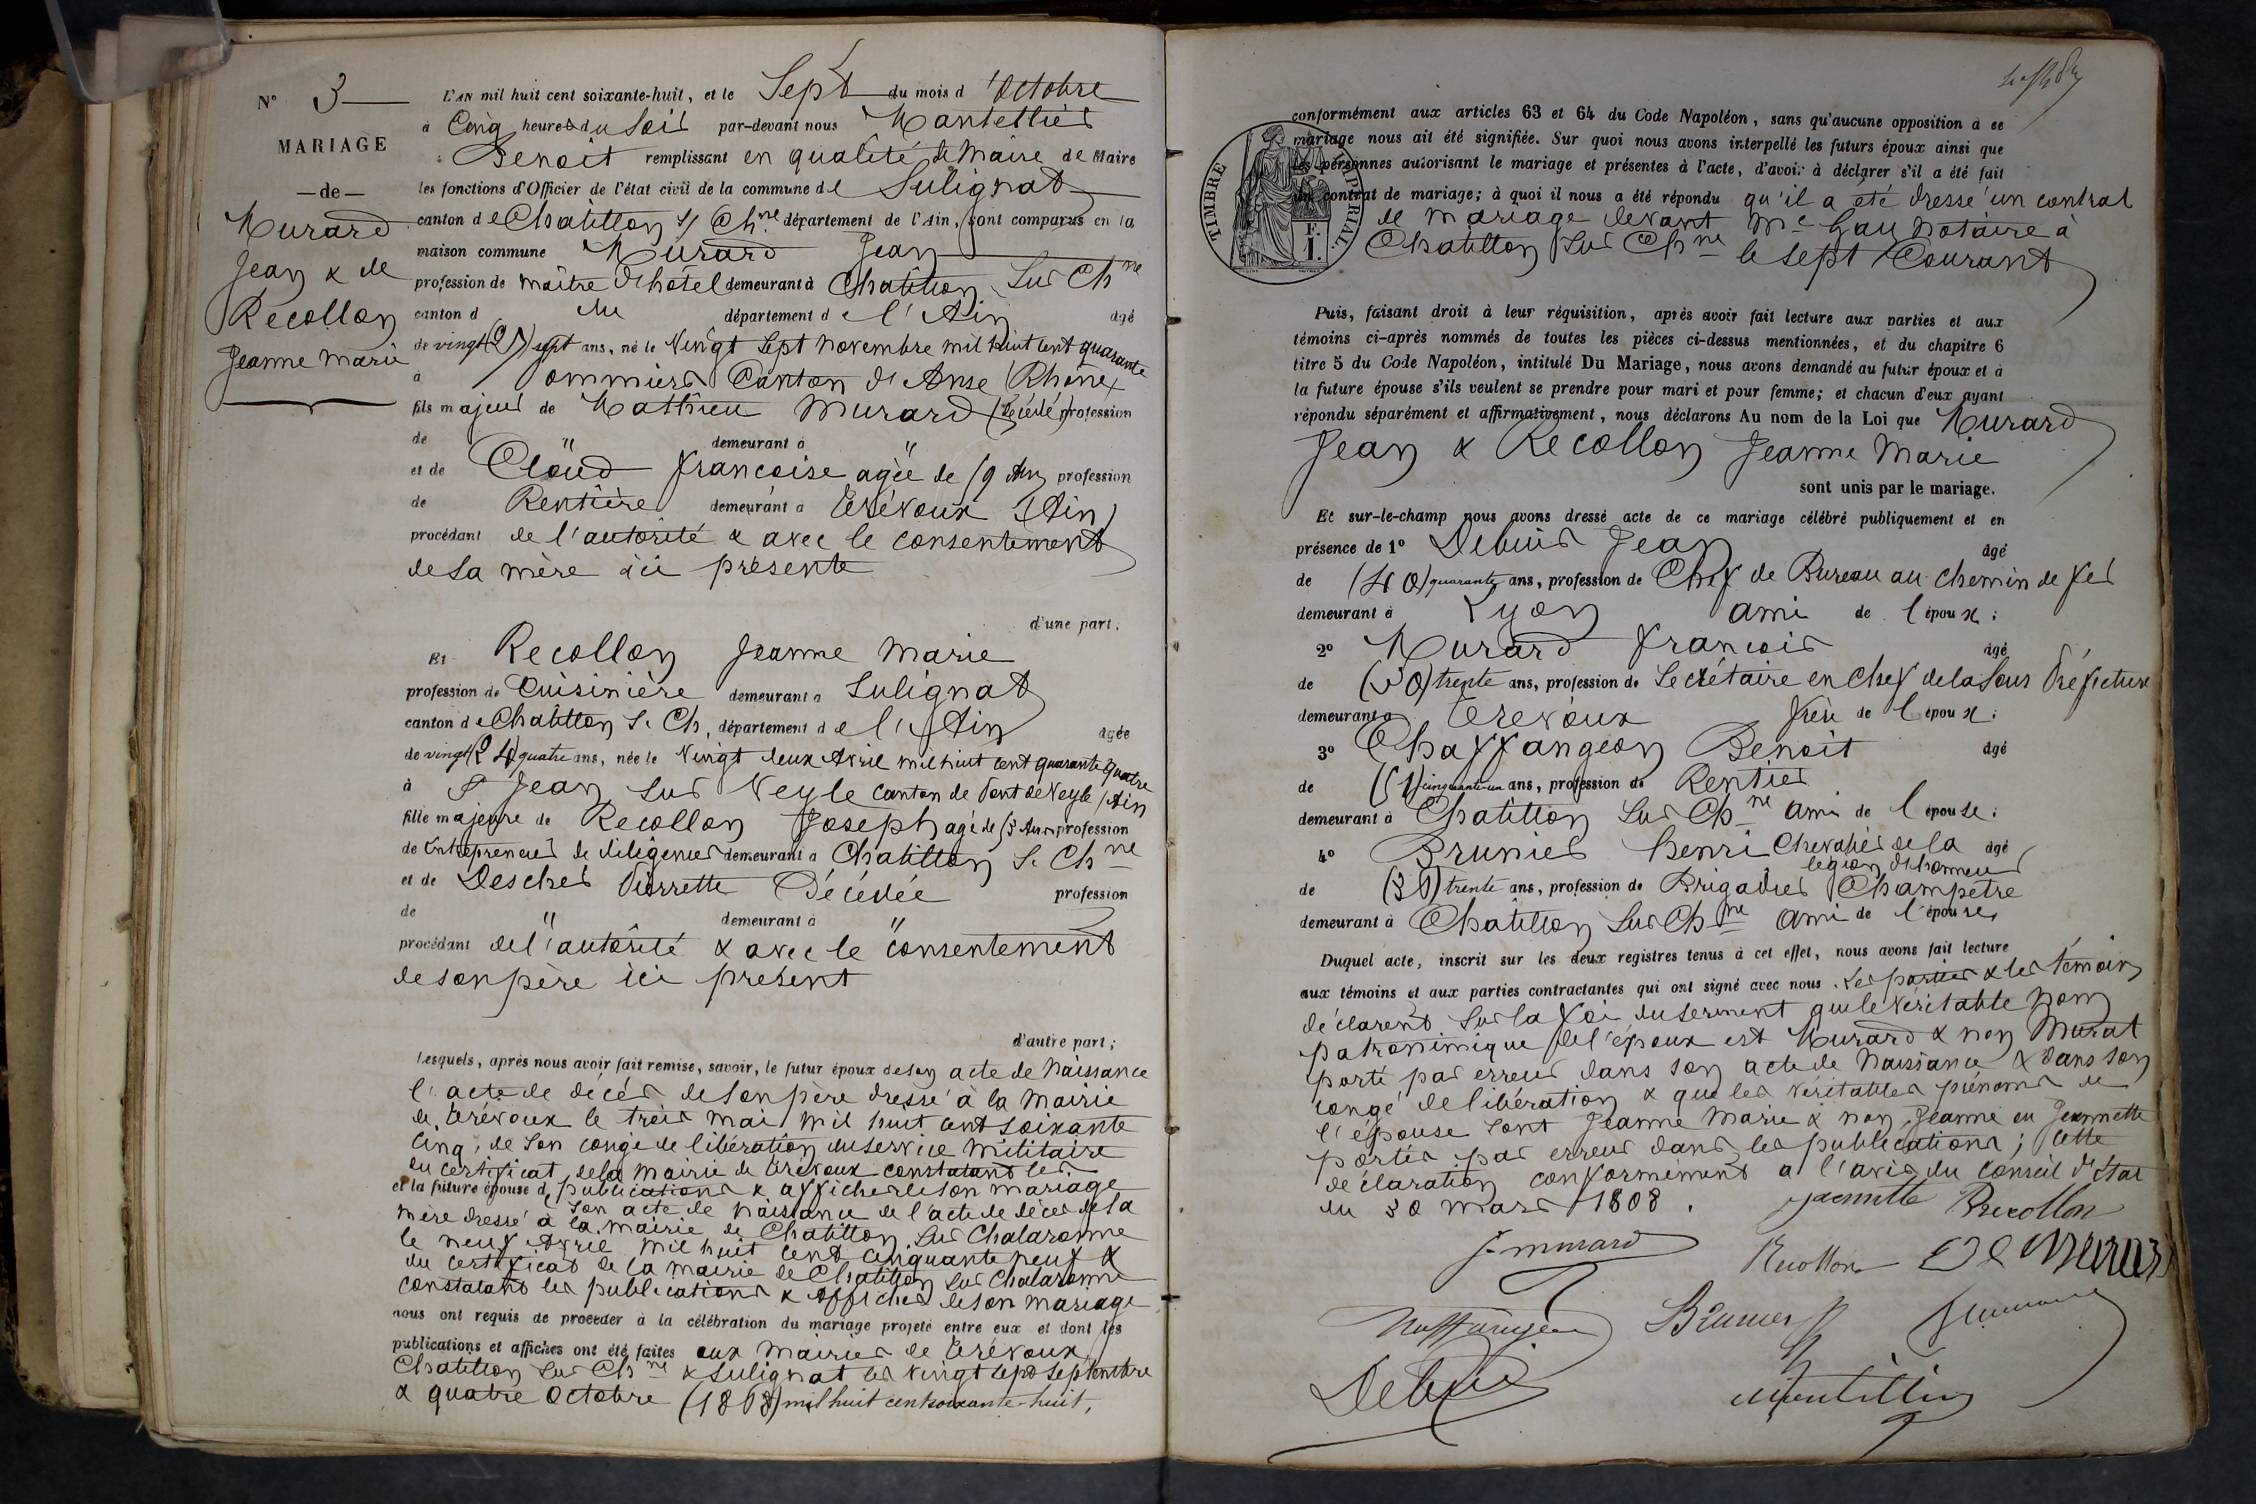 N° 3
MARIAGE
—de—
Murard
Jean & de
Recollon
Jeanne Marie
L'AN mil huit cent soixante-huit, et le Sept du mois d'Octobre
à Cinq heures du Soir par-devant nous Mantellier
Benoit remplissant en qualité de Maire de Maire
les fonctions d'Officier de l'état civil de la commune de Sulignat
canton de Chatillon s/ Ch.ne département de l'Ain, sont comparus en la
maison commune Murard Jean
profession de maître d'hôtel demeurant à Chatillon Sur Ch ne
canton d du département de l'Ain âgé
de vingt (27) sept ans, né le Vingt Sept novembre mil huit cent quarante
à Pommiers Canton d'Anse (Rhône)
fils majeur de Mathieu Murard (Décédé) profession
de " demeurant à "
et de Cloüd Françoise agée de ans profession
de Rentière demeurant à Trévoux (Ain)
procédant de l'autorité & avec le consentement
de sa mère ici présente
d'une part.
Et Recollon Jeanne Marie
profession de Cuisinière demeurant à Sulignat
canton de Chatillon S. Ch, département de l'Ain âgée
de vingt (24) quatre ans, née le Vingt deux Avril mil huit cent quarante quatre
à St Jean Sur Veyle canton de Pont de Veyle (Ain
fille majeure de Recollon Joseph agé de ans profession
de Entrepreneur de diligences demeurant à Chatillon S. Ch ne
et de Descher Pierrette Décédée profession
de " demeurant à "
procédant de l'autorité & avec le consentement
de son père ici présent
d'autre part;
Lesquels, après nous avoir fait remise, savoir, le futur époux de son acte de Naissance
l'acte de décès de son père dressé à la Mairie
de Trévoux le trois Mai mil huit cent soixante
Cinq, de Son congé de libération du service Militaire
du certificat de la Mairie de Trévoux constatant les
et la future épouse d publications & affiches de son mariage
Son acte de Naissance de l'acte de décès de sa
mère dressé à la mairie de Chatillon Sur Chalaronne
le neuf Avril mil huit cent cinquante neuf &
du certificat de la mairie de Chatillon Sur Chalaronne
constatant les publications & affiches de son mariage
nous ont requis de procéder à la célébration du mariage projeté entre eux et dont les
publications et affiches ont été faites aux Mairies de Trévoux,
Chatillon Sur Ch ne & Sulignat les Vingt Sept Septembre
& quatre Octobre (1868) mil huit cent soixante-huit,
conformément aux articles 63 et 64 du Code Napoléon, sans qu'aucune opposition à ce
mariage nous ait été signifiée. Sur quoi nous avons interpellé les futurs époux ainsi que
les personnes autorisant le mariage et présentes à l'acte, d'avoir à déclarer s'il a été fait
un contrat de mariage; à quoi il nous a été répondu qu'il a été dressé un contrat
de mariage devant Me Gay Notaire à
Chatillon Sur Ch ne le Sept Courant
TIMBRE IMPÉRIAL.
F.
1.
Puis, faisant droit à leur réquisition, après avoir fait lecture aux parties et aux
témoins ci-après nommés de toutes les pièces ci-dessus mentionnées, et du chapitre 6
titre 5 du Code Napoléon, intitulé Du Mariage, nous avons demandé au futur époux et à
la future épouse s'ils veulent se prendre pour mari et pour femme; et chacun d'eux ayant
répondu séparément et affirmativement, nous déclarons Au nom de la Loi que Murard
Jean & Recollon Jeanne Marie
sont unis par le mariage.
Et sur-le-champ nous avons dressé acte de ce mariage célébré publiquement et en
présence de 1° Jean âgé
de (40) quarante ans, profession de Chef de Bureau au Chemin de fer
demeurant à Lyon ami de l'époux;
2° Murard François âgé
de (30) trente ans, profession de Secrétaire en Chef de la Sous Préfecture
demeurant à Trevoux frère de l'époux;
3° Chaffangeon Benoit âgé
de (51) cinquante-un ans, profession de Rentier
demeurant à Chatillon Sur Ch ne ami de l'épouse;
4° Brunier Henri Chevalier de la âgé
légion d'honneur
de (30) trente ans, profession de Brigadier Champêtre
demeurant à Chatillon Sur Ch ne ami de l'épouse,
Duquel acte, inscrit sur les deux registres tenus à cet effet, nous avons fait lecture
aux témoins et aux parties contractantes qui ont signé avec nous. Les parties & les témoins
déclarent Sur la foi du serment que le véritable Nom
patronimique de l'époux est Murard & non Murat
porté par erreur dans son acte de Naissance & dans son
congé de libération & que les véritables prénoms de
l'épouse sont Jeanne Marie & non Jeanne ou Jeannette
portés par erreur dans les publications; cette
déclaration conformément à l'avis du Conseil d'état
du 30 mars 1808.
Jeannette Recollon
J. murard
Recollon
Brunier